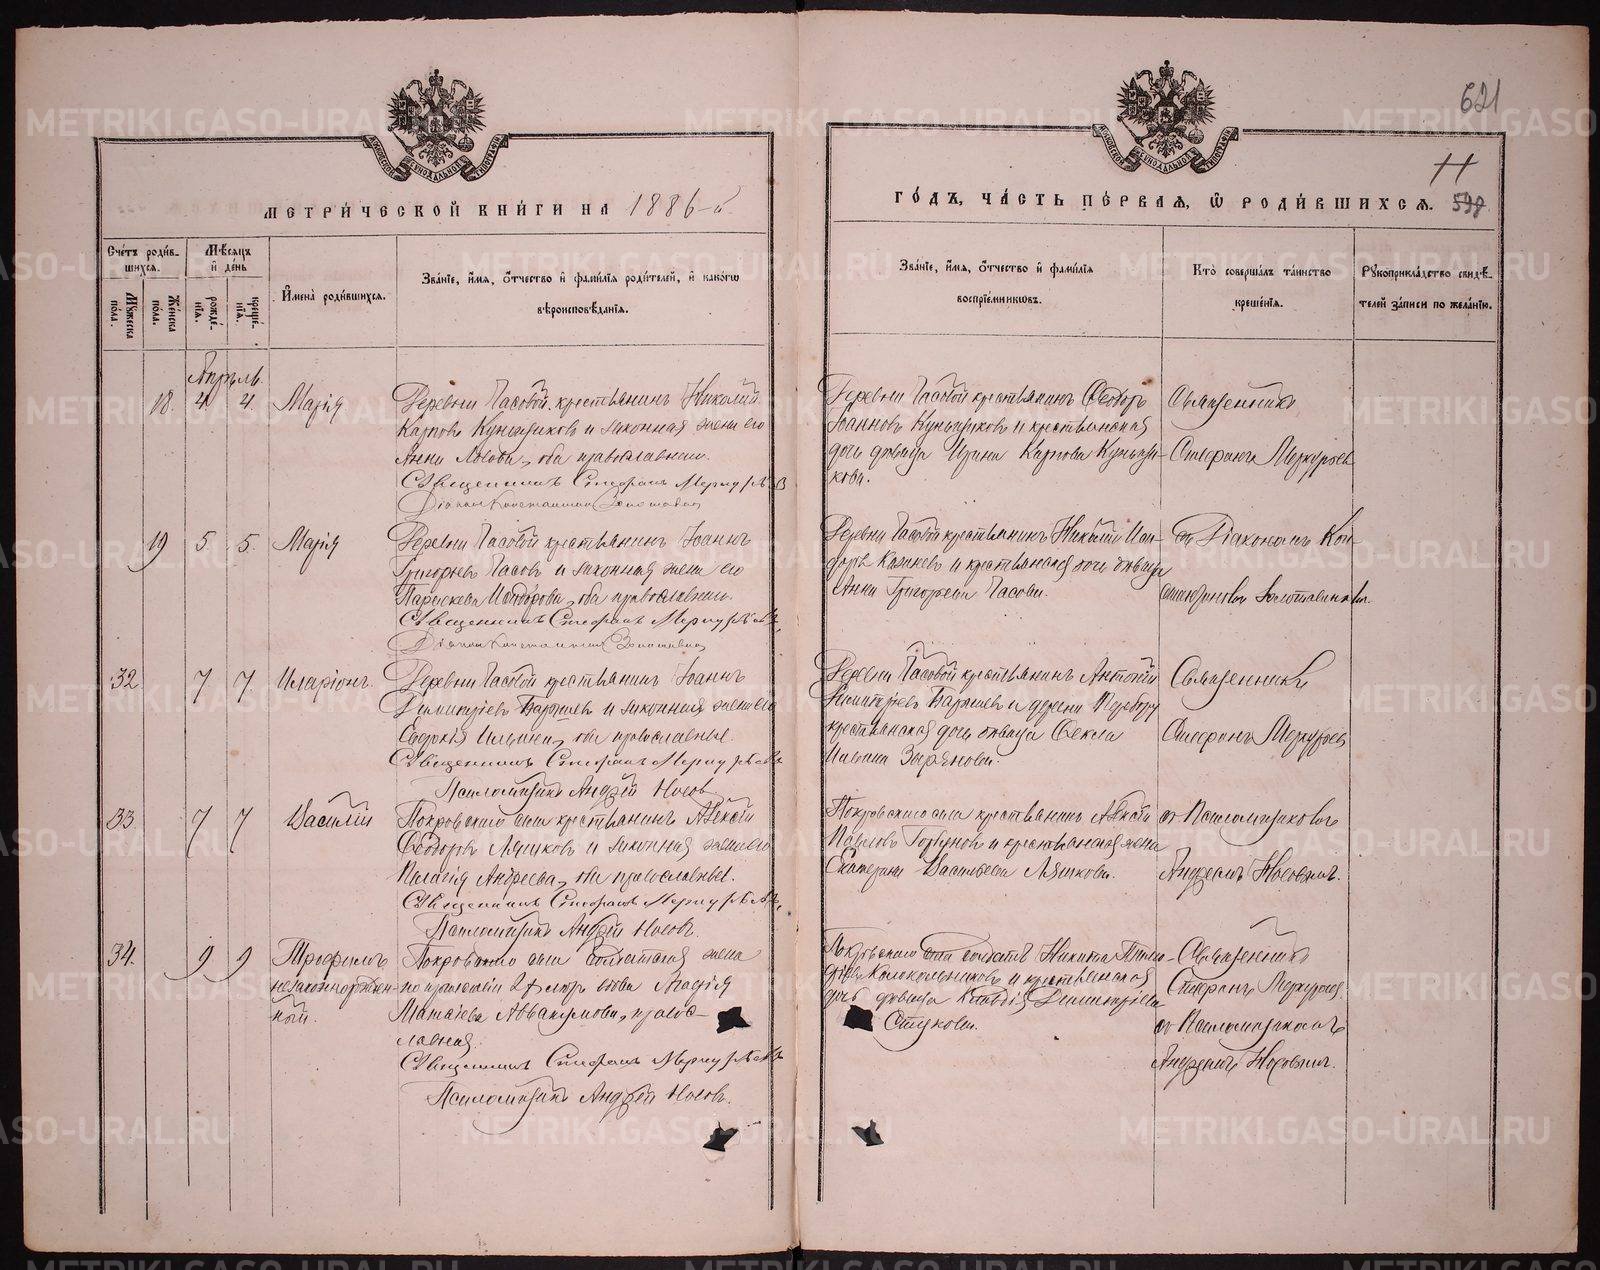 621
11
598
МЕТРИ́ЧЕСКОЙ КНИ́ГИ НА 1886-й
ГО́ДЪ, ЧА́СТЬ ПЕ́РВАЯ, Ѡ РОДИ́ВШИХСЯ.
Сче́тъ роди́в-
шихся.
Му́жеска по́ла.
Же́нска по́ла.
Мѣ́сяцъ и҆ де́нь
рожде́-
нїя.
креще́-
нїя.
И҆мена̀ роди́вшихся.
Зва́нїе, и҆́мя, ѻ҆́тчество и҆ фами́лїя роди́телей, и҆ како́гѡ
вѣроисповѣ́данїя.
Зва́нїе, и҆́мя, ѻ҆́тчество и҆ фами́лїя
воспрїе́мникѡвъ.
Кто̀ соверша́лъ та́инство
креще́нїя.
Рꙋкоприкла́дство свидѣ́-
телей за́писи по жела́нїю.
Апрѣль.
18. 4. 4. Марія
Деревни Часовой крестьянинъ Николай
Карповъ Куньщиковъ и законная жена его
Анна Львова, оба православные.
Священникъ Стефанъ Меркурьевъ
Діаконъ Константинъ
Деревни Часовой крестьянинъ Ѳеодоръ
Іоанновъ Куньщиковъ и крестьянская
дочь дѣвица Ирина Карпова Куньщи-
кова.
Священникъ
Стефанъ Меркурьевъ
19 5. 5. Марія
Деревни Часовой крестьянинъ Іоаннъ
Григорьевъ Часовъ и законная жена его
Параскева оба православные.
Священникъ Стефанъ Меркурьевъ,
Діаконъ Константинъ
Деревни Часовой крестьянинъ Николай
и крестьянская дочь дѣвица
Анна Григорьева Часова.
съ Діакономъ Кон-
32 7 7 Иларіонъ.
Деревни Часовой крестьянинъ Іоаннъ
Димитріевъ и законная жена его
Евдокія Ильина, оба православные.
Священникъ Стефанъ Меркурьевъ
Псаломщикъ Андрей Носовъ
Деревни Часовой крестьянинъ Антоній
Димитріевъ и деревни
крестьянская дочь дѣвица Ѳекла
Зырянова.
Священникъ
Стефанъ Меркурьевъ
33 7 7 Василій
Покровскаго села крестьянинъ Алексій
Ѳеодоровъ Ляшковъ и законная жена его
Пелагія Андреева, оба православные.
Священникъ Стефанъ Меркурьевъ,
Псаломщикъ Андрей Носовъ.
Покровскаго села крестьянинъ Алексій
Павловъ Горбуновъ и крестьянская жена
Екатерина Васильева Ляшкова.
съ Псаломщикомъ
Андреемъ Носовымъ.
34. 9 9 Трофимъ
незаконнорожден-
ный.
Покровскаго села солдатская жена
вдова Агафія
Матѳіева Аввакумова, право-
славная.
Священникъ Стефанъ Меркурьевъ
Псаломщикъ Андрей Носовъ.
Покровскаго села солдатъ Никита
Колокольниковъ и крестьянская
дочь дѣвица Клавдія Димитріева
Стукова.
Священникъ
Стефанъ Меркурьевъ
съ Псаломщикомъ
Андреемъ Носовымъ.
METRIKI.GASO-URAL.RU